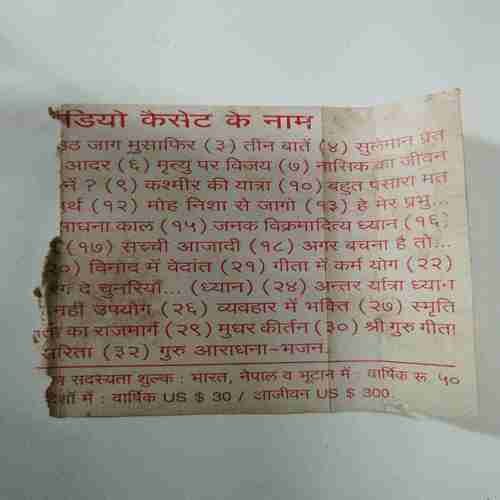 डियो कैसेट के नाम
उठ जाग मुसाफिर (३) तीन बातें (४) सुलेमान प्रेत
आदर (६) मृत्यु पर विजय (७) नासिक का जीवन
नें ? (९) कश्मीर की यात्रा (१०) बहुत पसारा मत
र्थ (१२) मोह निशा से जागो (१३) हे मेरे प्रभु...
साधना काल (१५) जनक विक्रमादित्य ध्यान (१६)
(१७) सच्ची आजादी (१८) अगर बचना है तो...
२०) विनोद में वेदांत (२१) गीता में कर्म योग (२२)
दे चुनरियाँ... (ध्यान) (२४) अन्तर यात्रा ध्यान
नहीं उपयोग (२६) व्यवहार में भक्ति (२७) स्मृति
का राजमार्ग (२९) मुधर कीर्तन (३०) श्री गुरु गीता
(३२) गुरु आराधना-भजन
सदस्यता शुल्क : भारत, नेपाल व भूटान में : वार्षिक रू. ५०
में : वार्षिक US $ 30 / आजीवन US $ 300.